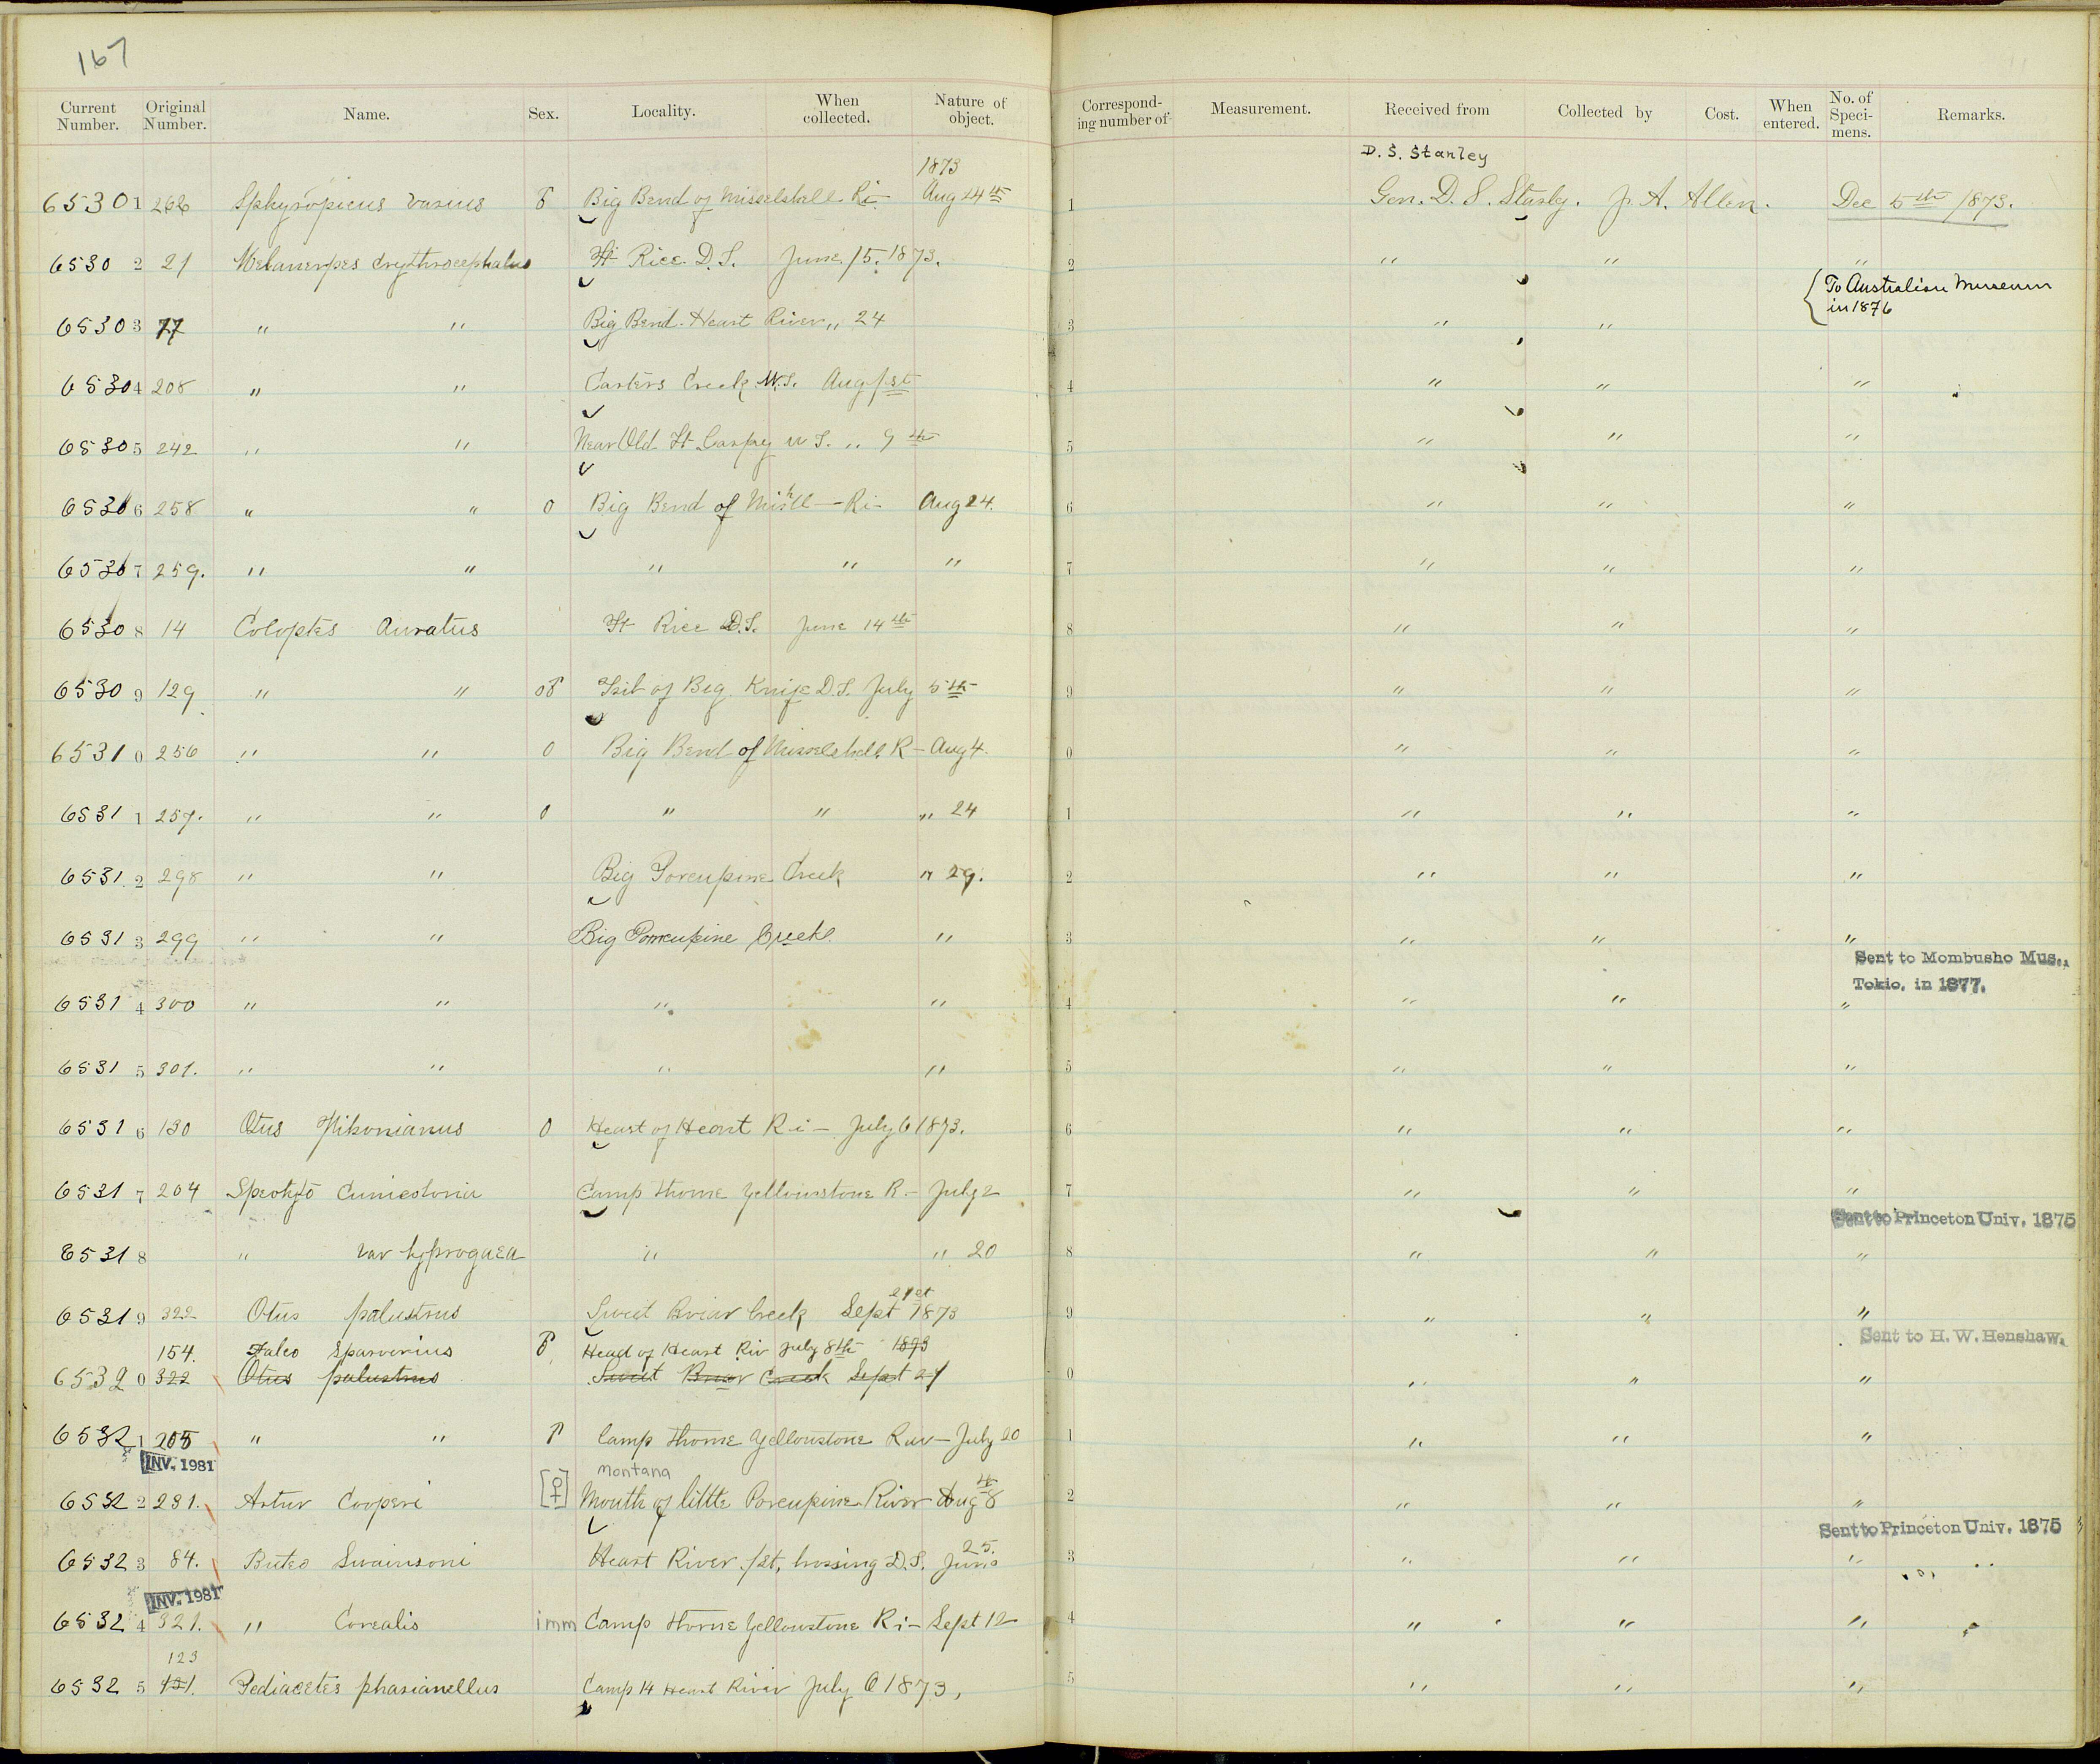 167
Current Number. Original Number. Name. Sex. Locality. When collected. Nature of object. Corresponding number of Measurement. Received from Collected by Cost. When entered. No. of Specimens. Remarks.
1873 D. S. Stanley
65301 266 Sphyropicus varius ♂ Big Bend of Musselshall Ri- Aug 24th 1 Gen. D. S. Stanley. J. A. Allen. Dec 5th 1873.
65302 21 Melanerpes Erythrocephalus Ft Rice D.T. June 15. 1873. 2 " " "
{ To Australian Museum
in 1876
65303 77 " " Big Bend. Heart River " 24 3 " "
65304 208 " " Carters Creek M.T. Aug 1st 4 " " "
65305 242 " " Near Old Ft " 9th 5 " " "
65306 258 " " O Big Bend of Ri- Aug 24. 6 " " "
65307 259. " " " " " 7 " " "
65308 14 Coloptes Auratus Ft Rice D.T. June 14th 8 " " "
65309 129 " " of Big Knife D.T. July 5th 9 " " "
65310 256 " " O Big Bend of Musselshall R- Aug 4. 0 " " "
65311 257. " " O " " " 24 1 " " "
65312 298 " " Big Porcupine Creek " 29. 2 " " "
65313 299 " " Big Porcupine Creek " 3 " " "
Sent to Mombusho Mus.,
Tokio, in 1877.
65314 300 " " " " 4 " " "
65315 301. " " " " 5 " " "
65316 130 Otus O Heart of Heart Ri- July 6 1873. 6 " " "
65317 204 Speotyto Camp Thorne Yellowstone R- July 2 7 " " "
Sent to Princeton Univ. 1875
65318 " var hyprogaea " " 20 8 " " "
21st
65319 322 Otus palustrus Sweet Briar Creek Sept 1873 9 " " "
Sent to H. W. Henshaw.
154. Falco Sparverius ♂ Head of Heart Riv July 8th 1873
65320 322 Otus palustrus Sweet Briar Creek Sept 21 0 " " "
65321 205 " " Camp Thorne Yellowstone Riv- July 20 1 " " "
INV. 1981
montana
65322 281. Astur Cooperi [♀] Mouth of little Porcupine River Aug 8th 2 " " "
Sent to Princeton Univ. 1875
25.
65323 84. Buteo Swainsoni Heart River 1st, D.T. June 3 " " "
INV. 1981
65324 321. " Corealis imm Camp Thorne Yellowstone Ri- Sept 12 4 " " "
123
65325 Pediacetes phasianellus Camp 14 Heart River July 6 1873, 5 " " "